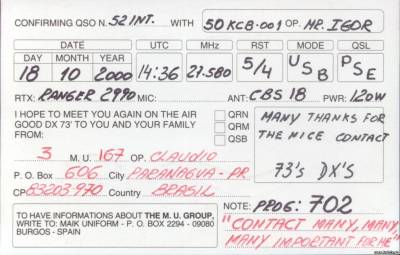 CONFIRMING QSO N. 52 INT. WITH 50KCB·001 OP. MR. IGOR
DATE UTC MHz RST MODE QSL
DAY MONTH YEAR
18 10 2000 14:36 27.580 5/4 USB PSE
RTX: RANGER 2990 MIC: ANT: CBS 18 PWR: 120W
I HOPE TO MEET YOU AGAIN ON THE AIR
GOOD DX 73' TO YOU AND YOUR FAMILY
FROM:
QRN
QRM
QSB
MANY THANKS FOR
THE NICE CONTACT
73's DX'S
3 M. U. 167 OP. CLAUDIO
P. O. Box 606 City PARANAGUA - PR.
CP 83203970 Country BRASIL
NOTE: PROG: 702
TO HAVE INFORMATIONS ABOUT THE M. U. GROUP,
WRITE TO: MAIK UNIFORM - P. O. BOX 2294 - 09080
BURGOS - SPAIN
"CONTACT MANY, MANY,
MANY IMPORTANT FOR ME"